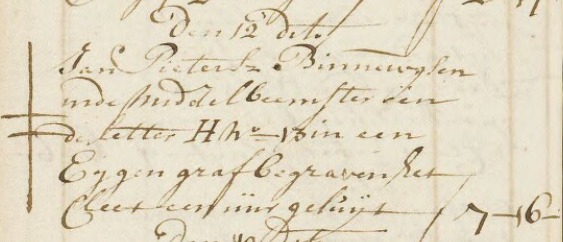 Den 12 dito
Jan Pietersz Binnewijsen
inde middelbeemster een
de letter H No 13 in een
Eijgen graf begraven het
Cleet een uur geluijt 7-16-